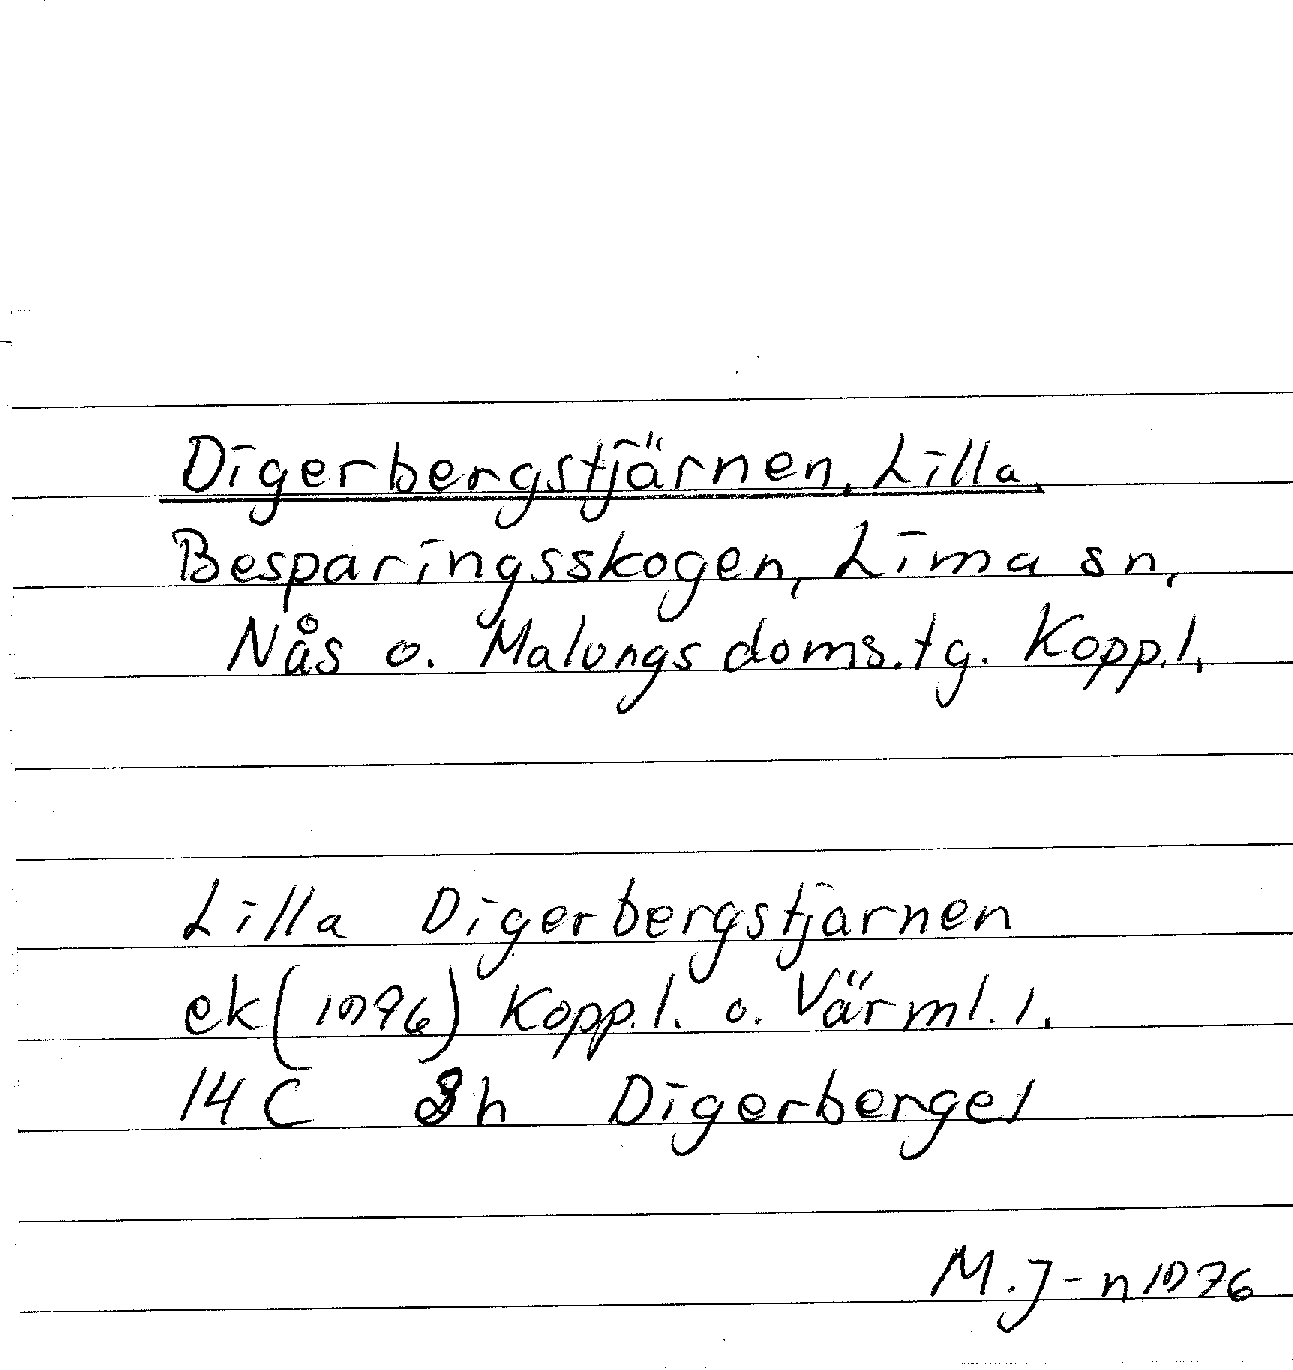 Digerbergstjärnen, Lilla.
Besparingsskogen, Lima sn,
Nås o. Malungs doms.tg. Kopp.l.
Lilla Digerbergstjärnen
ek (1976) Kopp.l. o. Värml.l.
14 C Sh Digerberget
M.J-n 1976